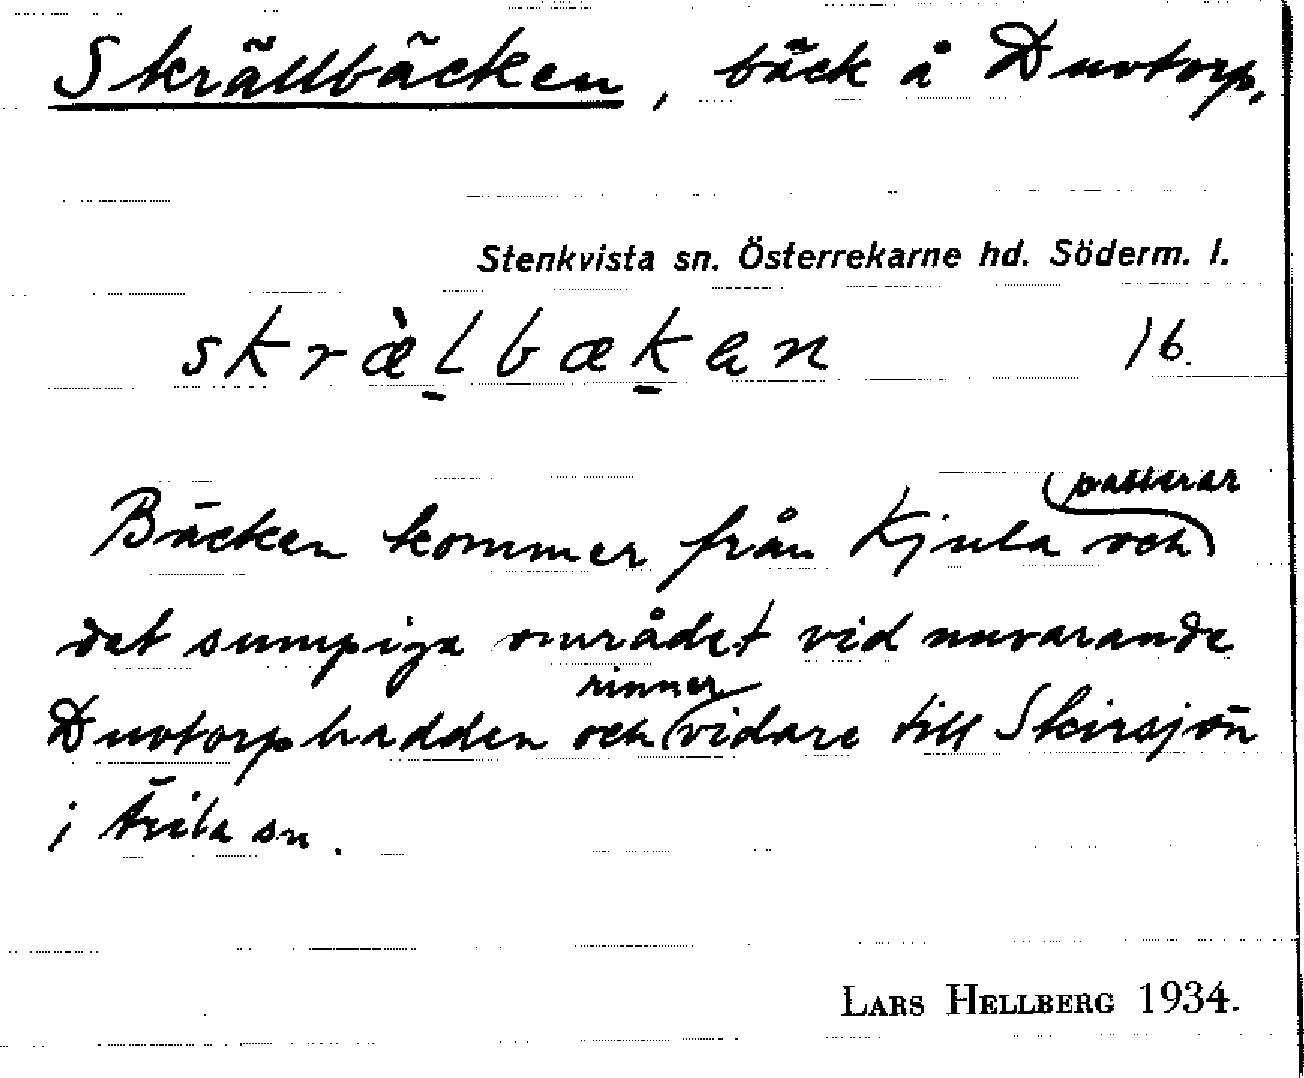 Skrällbäcken, bäck å Duvtorp.
Stenkvista sn. Österrekarne hd. Söderm. l.
skræ̀l̠bæk̠an 16.
Bäcken kommer från Kjula och passerar
det sumpiga området vid nuvarande
Duvtorpbadden och rinner vidare till Skirsjön
i Ärila sn.
LARS HELLBERG 1934.